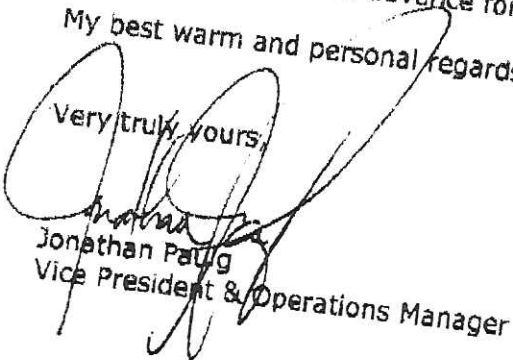 advance for
My best warm and personal regards
Very truly yours,
Jonathan
Vice President & Operations Manager